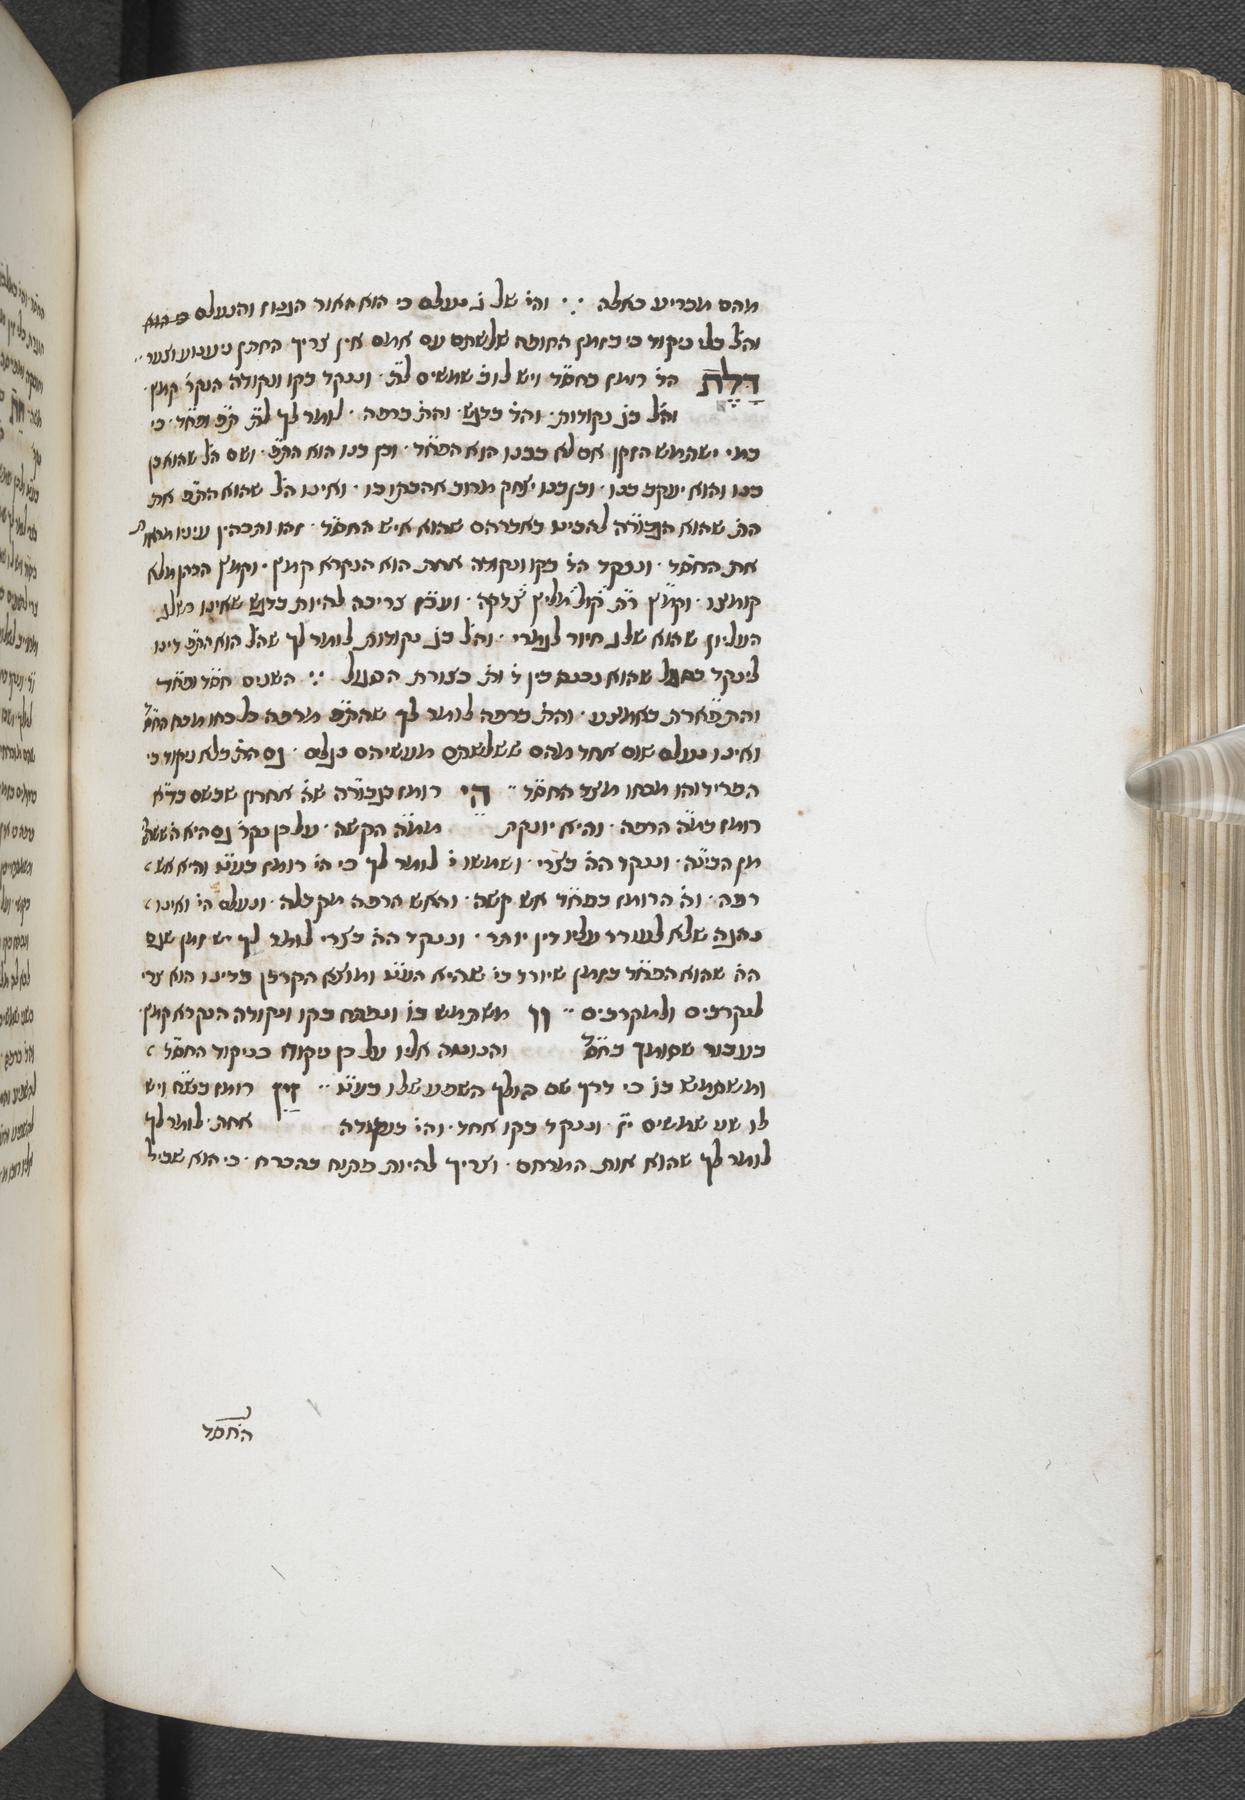 מהם מכריע כאלה ∵ והי׳ של ג׳ נעלם כי הוא האור הגנוז והנעלם
והל׳ בלי ניקוד כי בזמן החופה שלשתם עם אמם אין צריך החתן
דלת הד׳ רומז בחס״ד ויש לו ב׳ שמשים ל״ת · וננקד בקו ונקודה הנקר׳ קמץ ·
והל׳ בג׳ נקודות · והד׳ בדגש · והת׳ ברפה · לומר לך ל״ת ת״פ ופח״ד · כי
במי ישתמש הזקן אם לא בבנו הוא הפח״ד · ובן בנו הוא הת״פ · ושם הל׳ שהוא בן
בנו והוא יעקב בנו · ובן בנו יצחק מרוב אהבתו בו · ואינו הל׳ שהוא הת״פ את
הת׳ שהוא הגבור״ה להביט באברהם שהוא איש החס״ד · זהו ותכהין עיניו מראות
את החס״ד · וננקד הד׳ בקו ונקודה אחת הוא הנקרא קמץ · וקמץ הכהן מלא
קומצו · וקמ״ץ ר״ת קול מליץ צדקה · וע״כ צריכה להיות בדגש שאינו
העליון שהוא שלג חיור לגמרי · והל׳ בג׳ נקודות לומר לך שהל׳ הוא הת״פ דינו
לינקד בסגול שהוא נכנס בין ד׳ ות׳ בצורת הסגול ∵ השנים חס״ד ופח״ד
והתפארת באמצע · והת׳ ברפה לומר לך שהת״פ מרפה כל כחו מכח החס״ד
ואינו נעלם שום אחד מהם ששלשתם מעשיהם נגלים · גם הת׳ בלא ניקוד כי
הפרידוהו מכחו מצד החס״ד ·· הי רומז בגבור״ה שה׳ אחרון שבשם
רומז במ״ה הרפה · והיא יונקת ממ״ה הקשה · על כן נקר׳ גם היא
מן הבינ״ה · וננקד הה׳ בצרי · ושמשו י׳ לומר לך כי הי׳ רומז בע״ט והיא אש
רפה · וה׳ הרומז בפח״ד אש קשה · והאש הרפה מקבלה · ונעלם הי׳ ואינו
נהגה שלא לעורר עליו דין יותר · וננקד הה׳ בצרי לומר לך יש זמן שגם
הה׳ שהוא הפח״ד בזמן שיורד בי׳ שהיא הע״ט ומוצא הקרבן בדינו הוא צרי
לנקרבים ולמקרבים ·· וו משתמש בו׳ ונפתח בקו ונקודה הנקרא קמץ ·
בעבור שסומך בחס״ד והנוטה אליו על כן ניקודו בניקוד החס״ד
ומשתמש בו׳ כי דרך שם הולך השפע שלו בע״ט ·· זין רומז בנצ״ח ויש
לו שני שמשים י״ן · וננקד בקו אחד · והי׳ בנקודה אחת · לומר לך
לומר לך שהוא אות המרחם · וצריך להיות פתוח בהכרח · כי הוא שביל
החסד